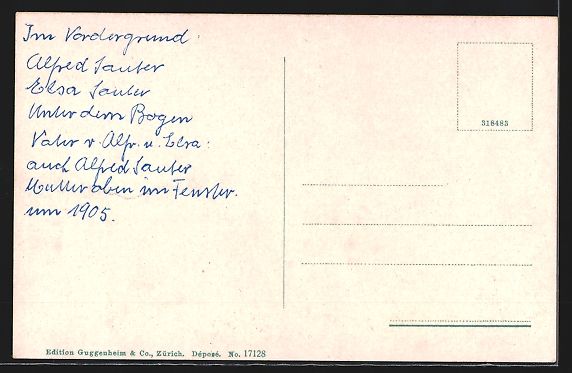 Im Vordergrund:
Alfred Sauter
Elsa Sauter
Unter dem Bogen
Vater v. Alfr. u. Elsa:
auch Alfred Sauter
Mutter oben im Fenster.
um 1905.
318483
Edition Guggenheim & Co., Zürich. Déposé. No. 17128